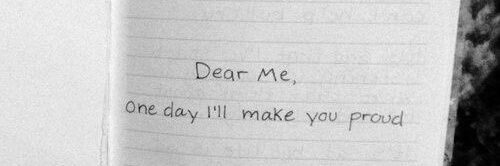 Dear Me,
one day I'll make you proud